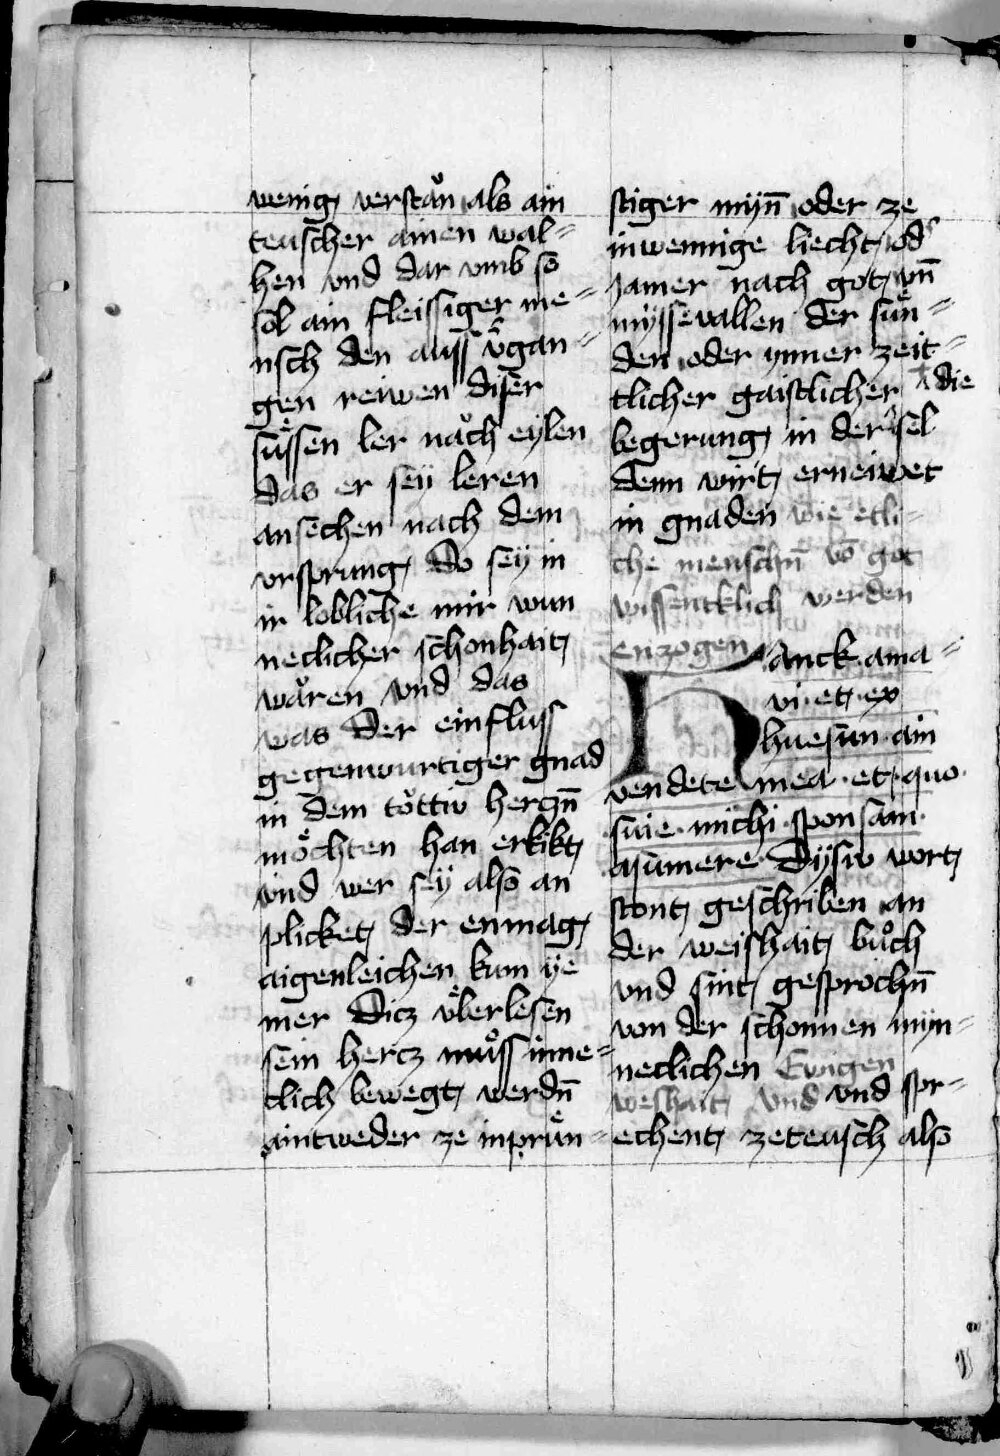 wenig verstaͦn als ain
teuscher ainen wal=
hen vnd dar vmb so
sol ain fleissiger me=
nsch den auss v̉gan=
gen reiwen diser
suͤssen ler naͦch eylen
das er sey leren
ansechen nach dem
vrsprung Do sey in
ir lobliche mir wun
neclicher schonhait
waͦren vnd das
was der einfluss
gegenwurtiger gnad
in dem toͤttiv herczn̄
moͤchten han erkikt
vnd wer sey also an
plicket der enmag
aigenleichen kum ye
mer dicz vͤberlesen
sein hercz muͦss inne=
clich bewegt werdn̄
aintweder ze inpruͤn=
stiger myn̄ oder ze
inwennige liecht od̉
Jamer nach got vn̄
myssevallen der sun=
den oder ymer zeit=
tlicher gaistlicher
begerung in der die sel
denn wirt erneiwet
in gnaden wie etli=
che menschn̄ vō got
wissentklich werden
enzogen
Hanck ama=
vi et ex
huesun ain
vendete mea et quo
suie michi sponsam
asumere Dysiv wort
stont geschriben an
der weishait buͦch
vnd sint gesprochn̄
von der schonnen myn=
neclichen Ewigen
weshait vnd vnd spr=
echent zeteusch also